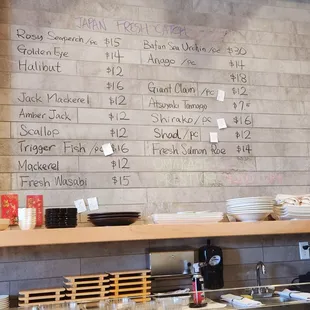 JAPAN FRESH CATCH
Rosy Seaperch /pc $15
Golden Eye $14
Halibut $12
$16
Jack Mackerel $12
Amber Jack $12
Scallop $12
Trigger Fish /pc $16
Mackerel $12
Fresh Wasabi $15
Bafun Sea Urchin /pc $30
Anago /pc $14
$18
Giant Clam /pc $12
Atsuyaki Tamago $7
Shirako /pc $16
Shad /pc $12
Fresh Salmon Roe $14